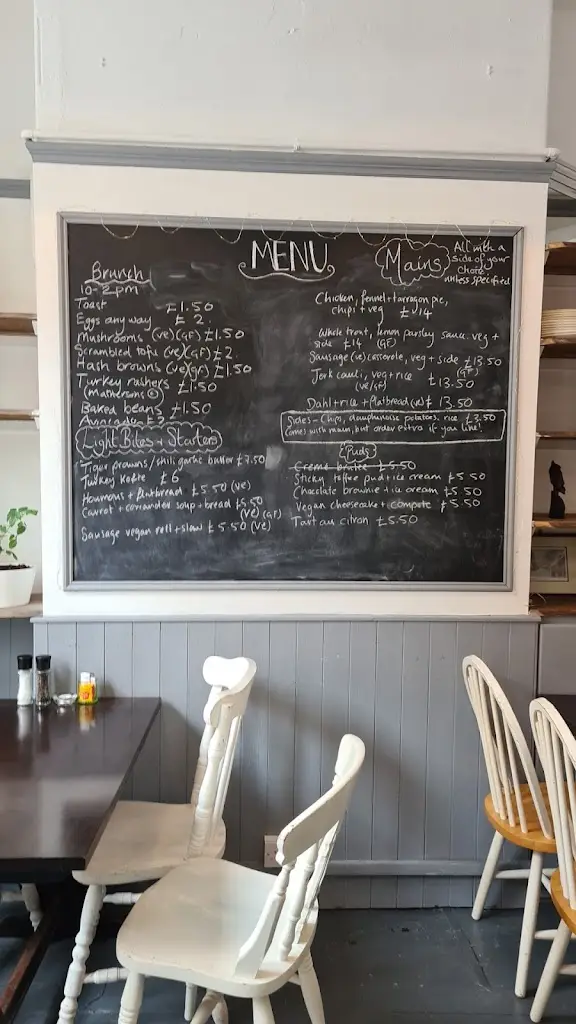 MENU
Brunch
10-2pm
Toast £1.50
Eggs any way £2
Mushrooms (ve)(GF) £1.50
Scrambled tofu (ve)(GF) £2
Hash browns (ve)(gf) £1.50
Turkey rashers £1.50
Baked beans £1.50
Avocado £3
Light Bites + Starters
Tiger prawns / chili garlic butter £7.50
Turkey Kofte £6
Houmous + flatbread £5.50 (ve)
Carrot + corriander soup + bread £5.50
(ve) (GF)
Sausage vegan roll + slaw £5.50 (ve)
Mains
All with a
side of your
choice
unless specified
Chicken, fennel + tarragon pie,
chips + veg £14
Whole trout, lemon parsley sauce veg +
side £14 (GF)
Sausage (ve) casserole, veg + side £13.50
(GF)
Jerk cauli, veg + rice £13.50
(ve/gf)
Dahl + rice + flatbread (ve) £13.50
Sides - Chips, dauphinoise potatoes, rice £3.50
comes with mains, but order extra if you like!
Puds
Creme brulee £5.50
Sticky toffee pud + ice cream £5.50
Chocolate brownie + ice cream £5.50
Vegan cheesecake + compote £5.50
Tart au citron £5.50